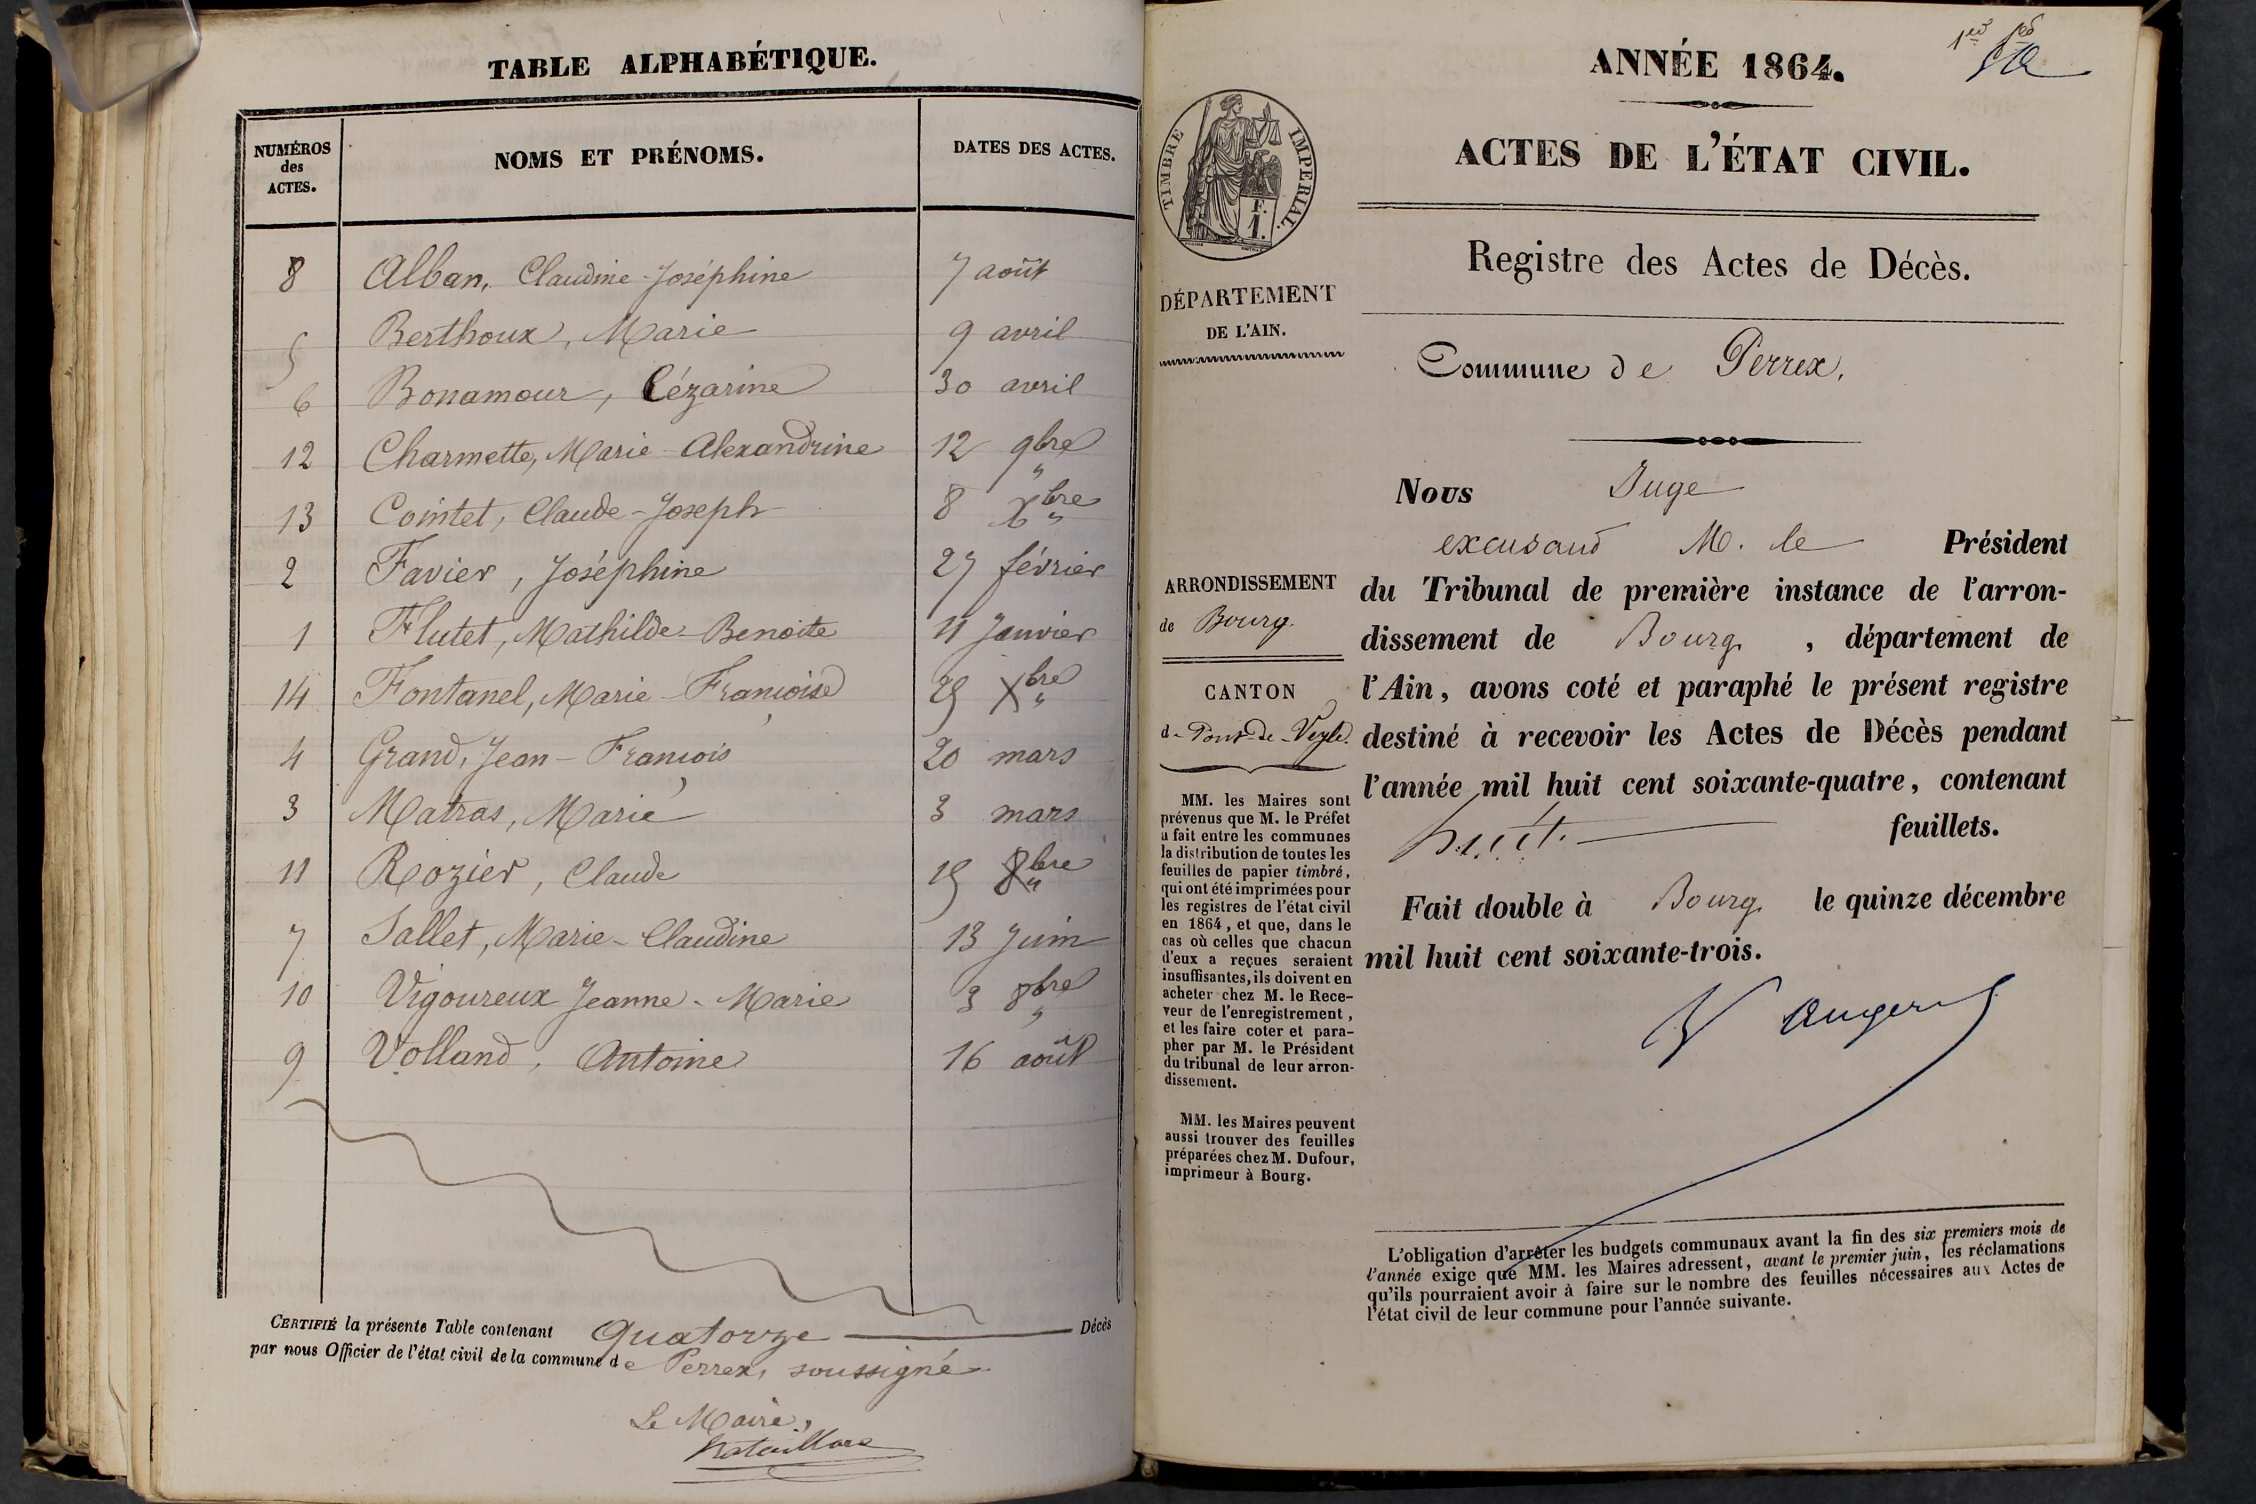 TABLE ALPHABÉTIQUE.
NUMÉROS des ACTES.
NOMS ET PRÉNOMS.
DATES DES ACTES.
8 Alban, Claudine-Joséphine 7 août
5 Berthoux, Marie 9 avril
6 Bonamour, Cézarine 30 avril
12 Charmette, Marie-Alexandrine 12 9bre "
13 Cointet, Claude-Joseph 8 Xbre "
2 Favier, Joséphine 27 février
1 Flutet, Mathilde-Benoite 11 Janvier
14 Fontanel, Marie-Françoise 25 Xbre "
4 Grand, Jean-François 20 mars
3 Matras, Marie 3 mars
11 Rozier, Claude 15 8bre "
7 Sallet, Marie-Claudine 13 Juin
10 Vigoureux Jeanne-Marie 3 8bre "
9 Volland, Antoine 16 août
CERTIFIÉ la présente Table contenant Quatorze Décès
par nous Officier de l'état civil de la commune de Perrex, soussigné
Le Maire,
ANNÉE 1864.
ACTES DE L'ÉTAT CIVIL.
TIMBRE IMPÉRIAL.
F.
1.
Registre des Actes de Décès.
DÉPARTEMENT
DE L'AIN.
Commune de Perrex,
ARRONDISSEMENT
de Bourg.
CANTON
de Pont-de-Veyle.
MM. les Maires sont
prévenus que M. le Préfet
a fait entre les communes
la distribution de toutes les
feuilles de papier timbré,
qui ont été imprimées pour
les registres de l'état civil
en 1864, et que, dans le
cas où celles que chacun
d'eux a reçues seraient
insuffisantes, ils doivent en
acheter chez M. le Rece-
veur de l'enregistrement,
et les faire coter et para-
pher par M. le Président
du tribunal de leur arron-
dissement.
MM. les Maires peuvent
aussi trouver des feuilles
préparées chez M. Dufour,
imprimeur à Bourg.
Nous Juge
excusant M. le Président
du Tribunal de première instance de l'arron-
dissement de Bourg, département de
l'Ain, avons coté et paraphé le présent registre
destiné à recevoir les Actes de Décès pendant
l'année mil huit cent soixante-quatre, contenant
huit feuillets.
Fait double à Bourg le quinze décembre
mil huit cent soixante-trois.
L'obligation d'arrêter les budgets communaux avant la fin des six premiers mois de
l'année exige que MM. les Maires adressent, avant le premier juin, les réclamations
qu'ils pourraient avoir à faire sur le nombre des feuilles nécessaires aux Actes de
l'état civil de leur commune pour l'année suivante.